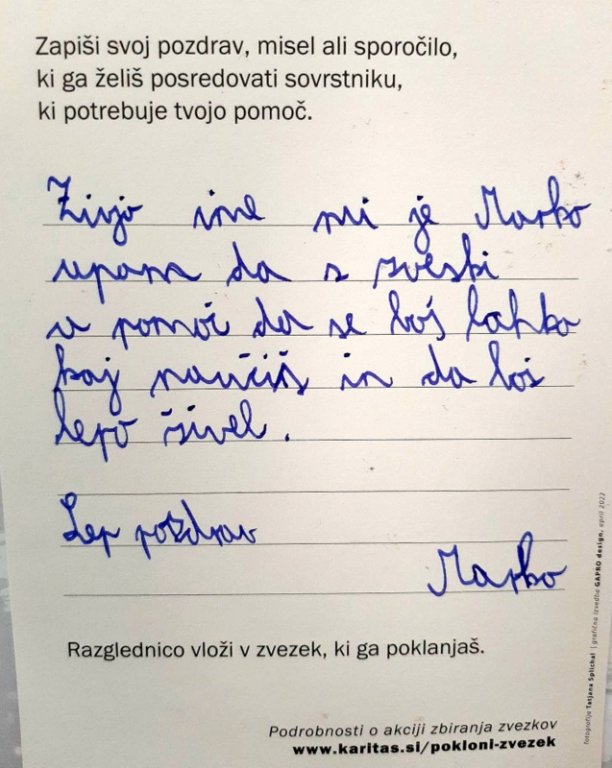 Zapiši svoj pozdrav, misel ali sporočilo,
ki ga želiš posredovati sovrstniku,
ki potrebuje tvojo pomoč.
Živjo ime mi je Marko
upam da s zveski
v pomoč da se boš lahko
kaj naučiš in da boš
lepo živel.
Lep pozdrav
Marko
Razglednico vloži v zvezek, ki ga poklanjaš.
Podrobnosti o akciji zbiranja zvezkov
www.karitas.si/pokloni-zvezek
fotografije Tatjana Splichal | grafična izvedba GAPRO design, april 2022